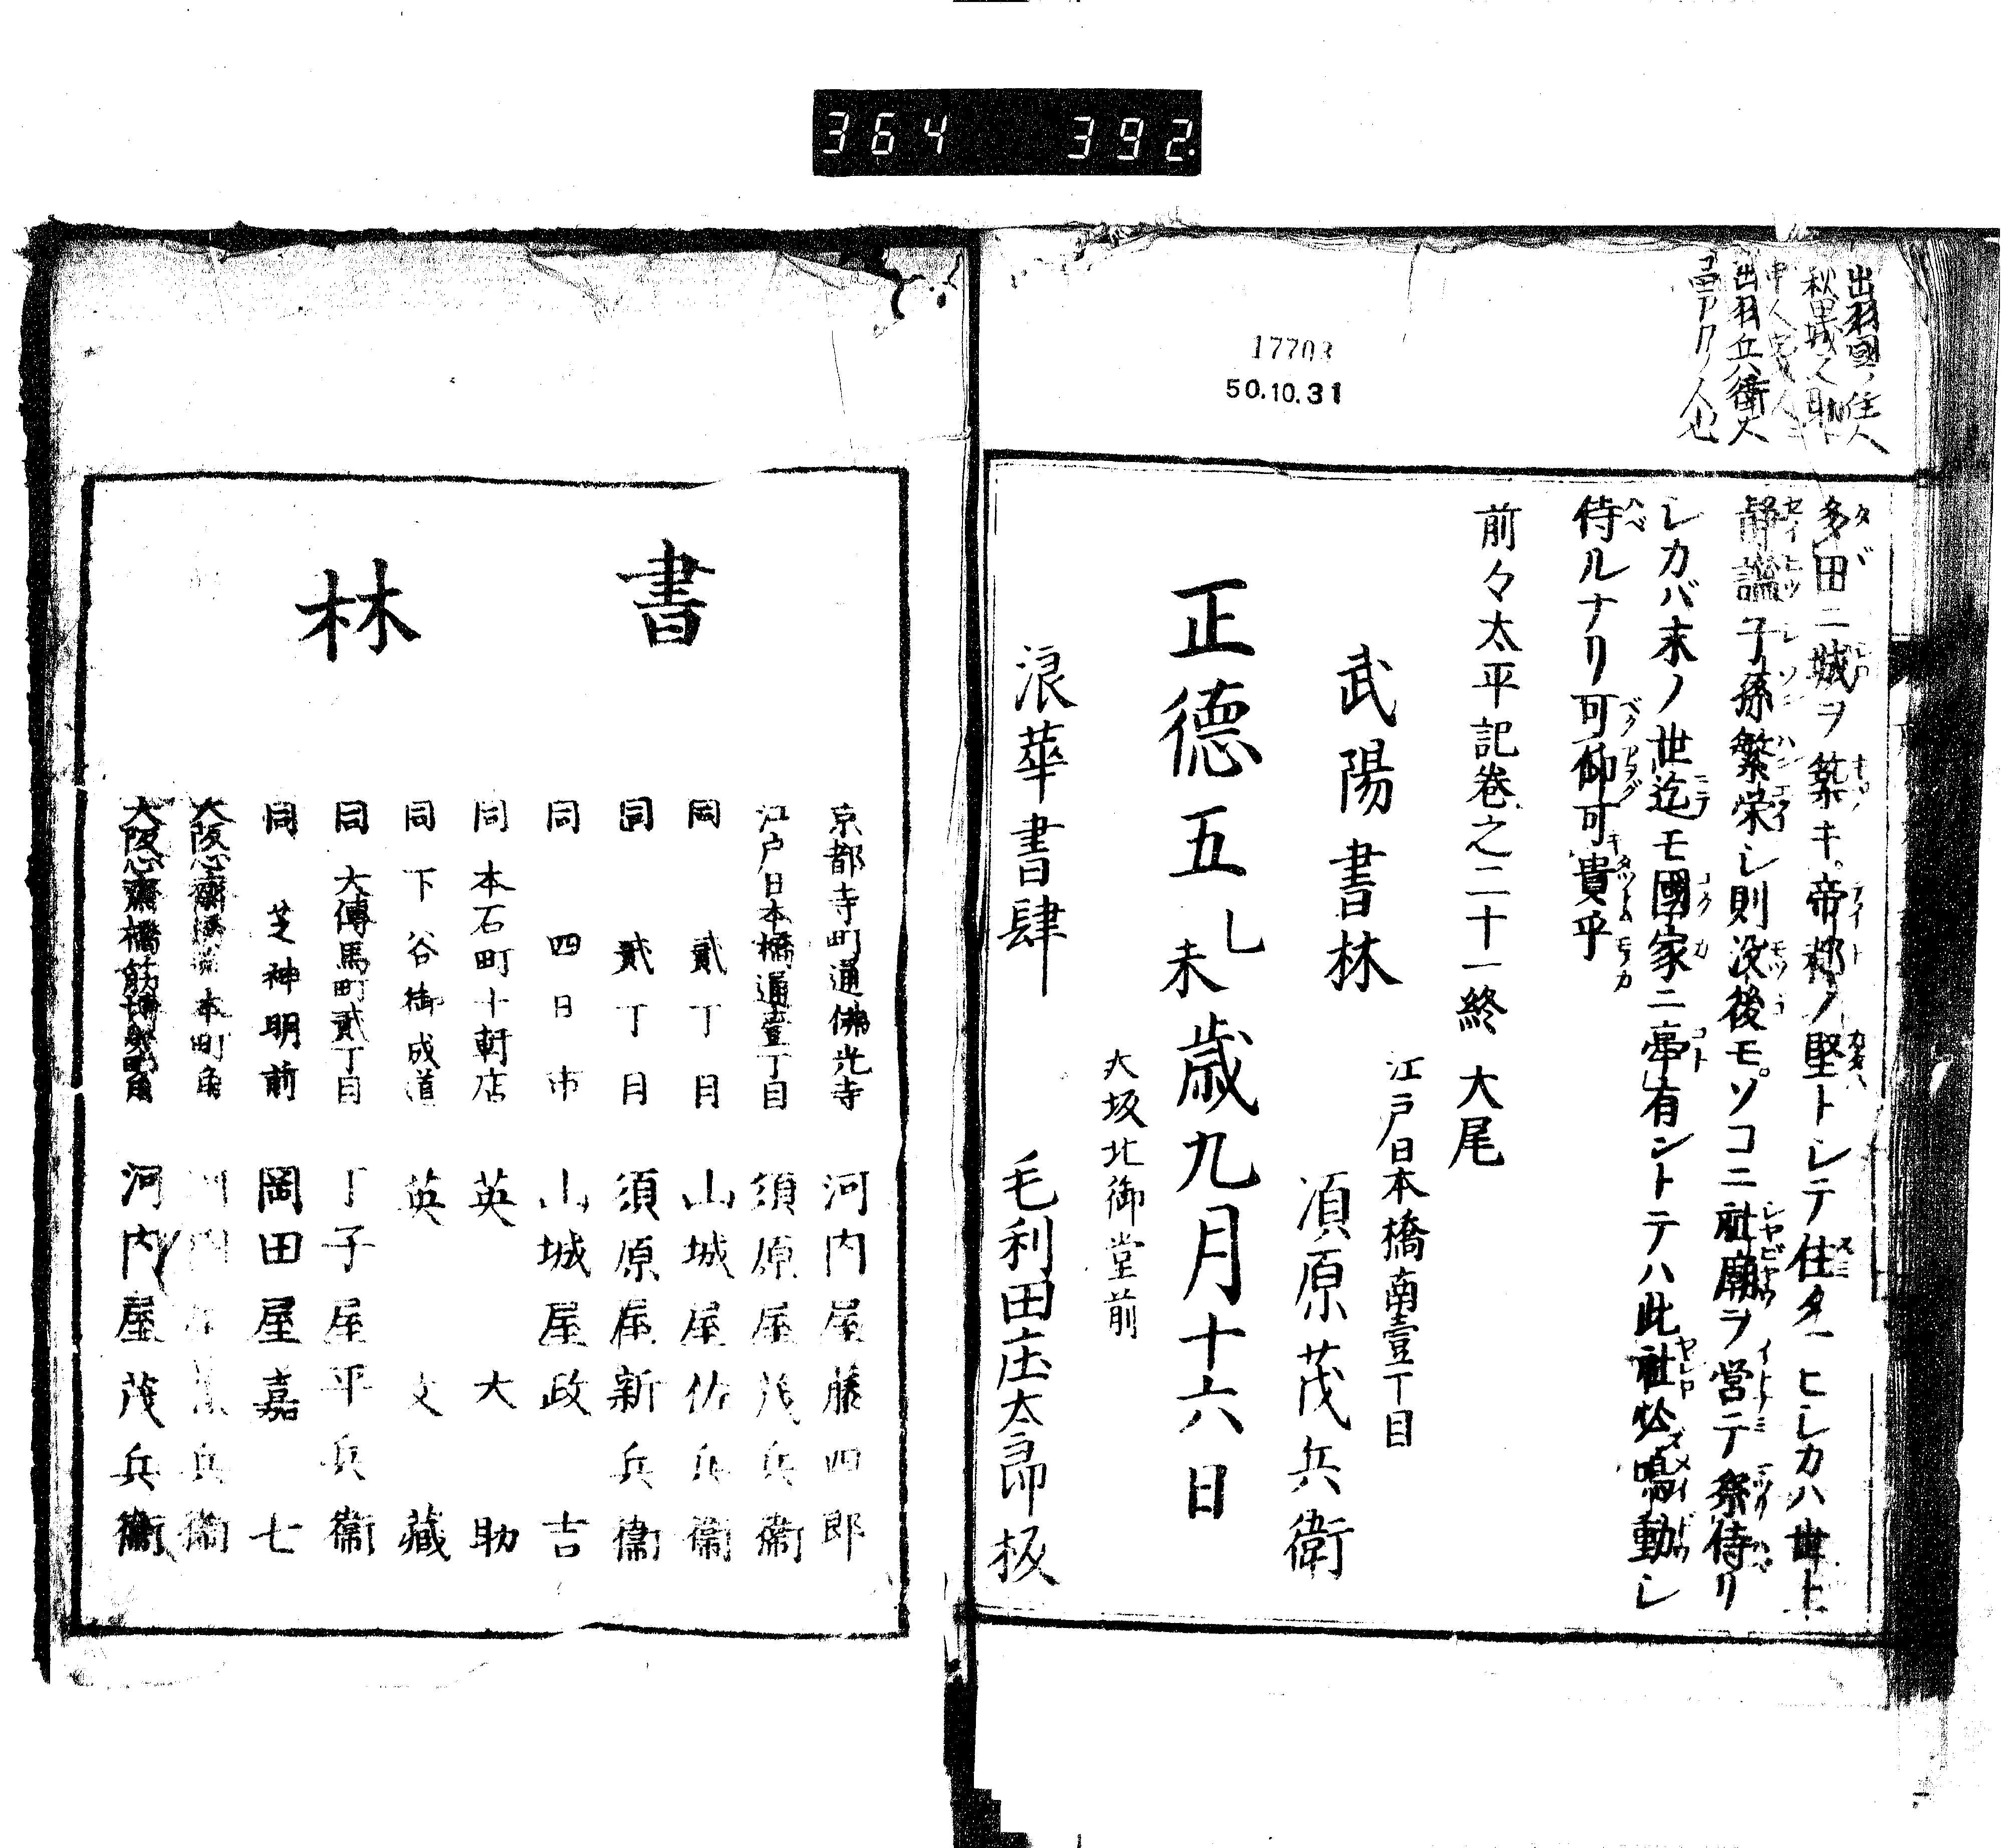 364 392
17703
50.10.31
出羽國ノ住人
秋田城之助ト
出羽兵衛大
多田ニ城ヲ築キ。帝都ノ堅トシテ住タマヒシカハ世上
静謐子孫繁栄シ則没後モ。ソコニ社廟ヲ営テ祭侍リ
シカバ末ノ世迄モ國家ニ亊有ントテハ此社必鳴動シ
侍ルナリ可仰可貴乎
前々太平記巻之二十一終 大尾
武陽書林 江戸日本橋南壹丁目 須原茂兵衛
正徳五乚未歳九月十六日
大坂北御堂前
浪華書肆 毛利田庄太郎板
書林
京都寺町通佛光寺 河内屋藤四郎
江戸日本橋通壹丁目 須原屋茂兵衞
同 貳丁目 山城屋佐兵衞
同 貳丁目 須原屋新兵衞
同 四日市 山城屋政吉
同 本石町十軒店 英大助
同 下谷御成道 英文藏
同 大傳馬町貳丁目 丁子屋平兵衞
同 芝神明前 岡田屋嘉七
大阪心齋橋 本町角 兵衞
大阪心齋橋筋博労町角 河内屋茂兵衞